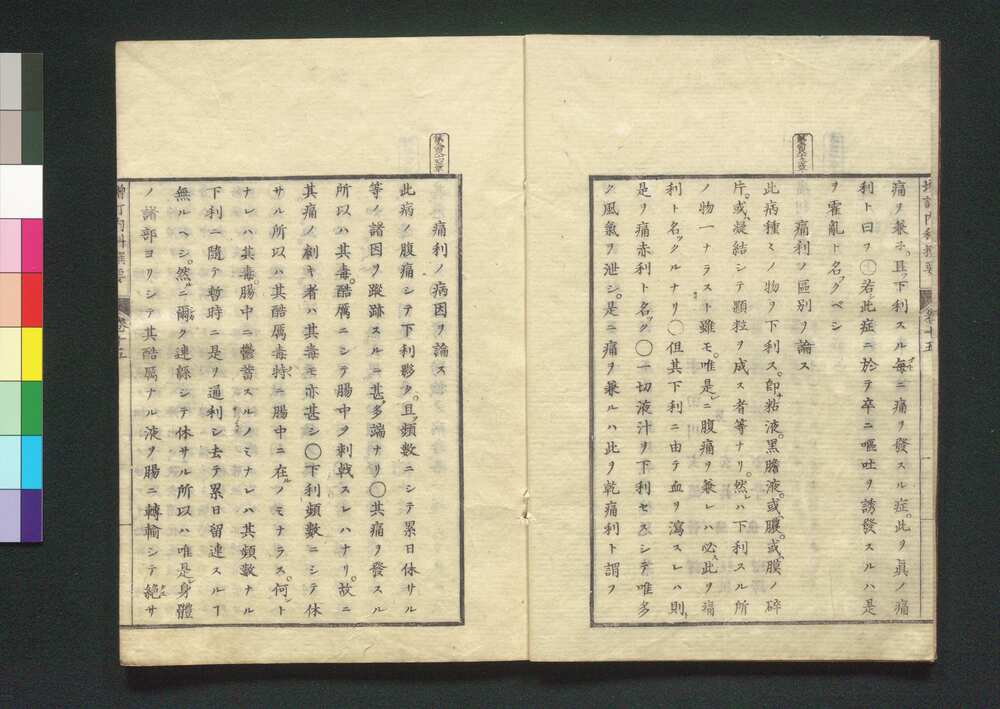 痛ヲ兼ネ。且下利スル毎ニ痛ヲ發スル症。此ヲ眞ノ痛
利ト曰フ〇若此症ニ於テ卒ニ嘔吐ヲ誘發スルハ是
ヲ霍亂ト名ツクベシ
痛利ノ區別ヲ論ス
此病種ミノ物ヲ下利ス。卽粘液。黑膽液。或膿。或膜ノ碎
片。或凝結シテ顆粒ヲ成ス者等ナリ。然レハ下利スル所
ノ物一ナラスト雖モ。唯是ニ腹痛ヲ兼レハ必此ヲ痛
利ト名ツクルナリ〇但其下利ニ由テ血ヲ瀉スレハ則
是ヲ痛赤利ト名ツク〇一切液汁ヲ下利セスシテ唯多
ク風氣ヲ泄シ。是ニ痛ヲ兼ルハ此ヲ乾痛利ト謂フ
增訂內科撰要
卷十五
痛利ノ病因ヲ論ス
此病ノ腹痛シテ下利夥ク。且頻數ニシテ累日休サル
等ノ諸因ヲ蹤跡スルニ甚多端ナリ〇其痛ヲ發スル
所以ハ其毒。酷厲ニシテ腸中ヲ刺戟スレハナリ。故ニ
其痛ノ劇キ者ハ其毒モ亦甚シ〇下利頻數ニシテ休
サル所以ハ其酷厲毒特ニ腸中ニ在ルノミナラス。何ント
ナレハ其毒。腸中ニ鬱蓄スルノミナレハ其頻數ナル
下利ニ隨テ暫時ニ是ヲ通利シ去テ累日留連スルヿ
無ルヘシ。然ルニ爾ク連緜シテ休サル所以ハ唯是身體
ノ諸部ヨリシテ其酷厲ナル液ヲ腸ニ轉輸シテ絕サ
增訂內科撰要
卷十五